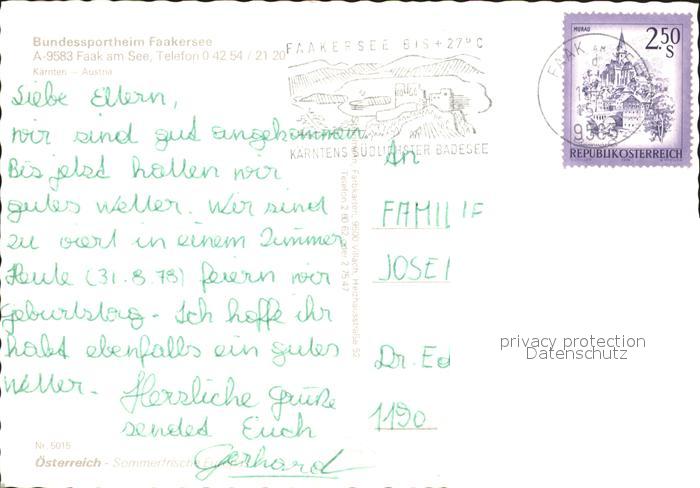 Bundessportheim Faakersee
A-9583 Faak am See, Telefon 0 42 54 / 21 20
Kärnten — Austria
FAAKERSEE BIS +27°C
KÄRNTENS SÜDLICHSTER BADESEE
MURAU
2.50
S
REPUBLIK ÖSTERREICH
FAAK AM
Liebe Eltern,
wir sind gut angekommen
Bis jetzt hatten wir
gutes Wetter. Wir sind
zu viert in einem Zimmer
Heute (31.8.78) feiern wir
Geburtstag. Ich hoffe ihr
habt ebenfalls ein gutes
Wetter.
Herzliche Grüße
sendet Euch
Gerhard
An
FAMILIE
JOSEF
Dr. Ed
1190
Farbkarten, 9500 Villach, Heizhausstraße 52
Telefon 2 80 62 oder 2 75 47
privacy protection
Datenschutz
Nr. 5015
Österreich - Sommerfrische